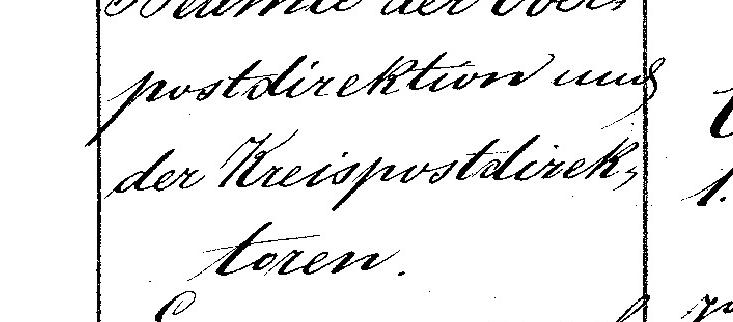 Beamte der Ober-
postdirektion und
der Kreispostdirek-
toren.
1.